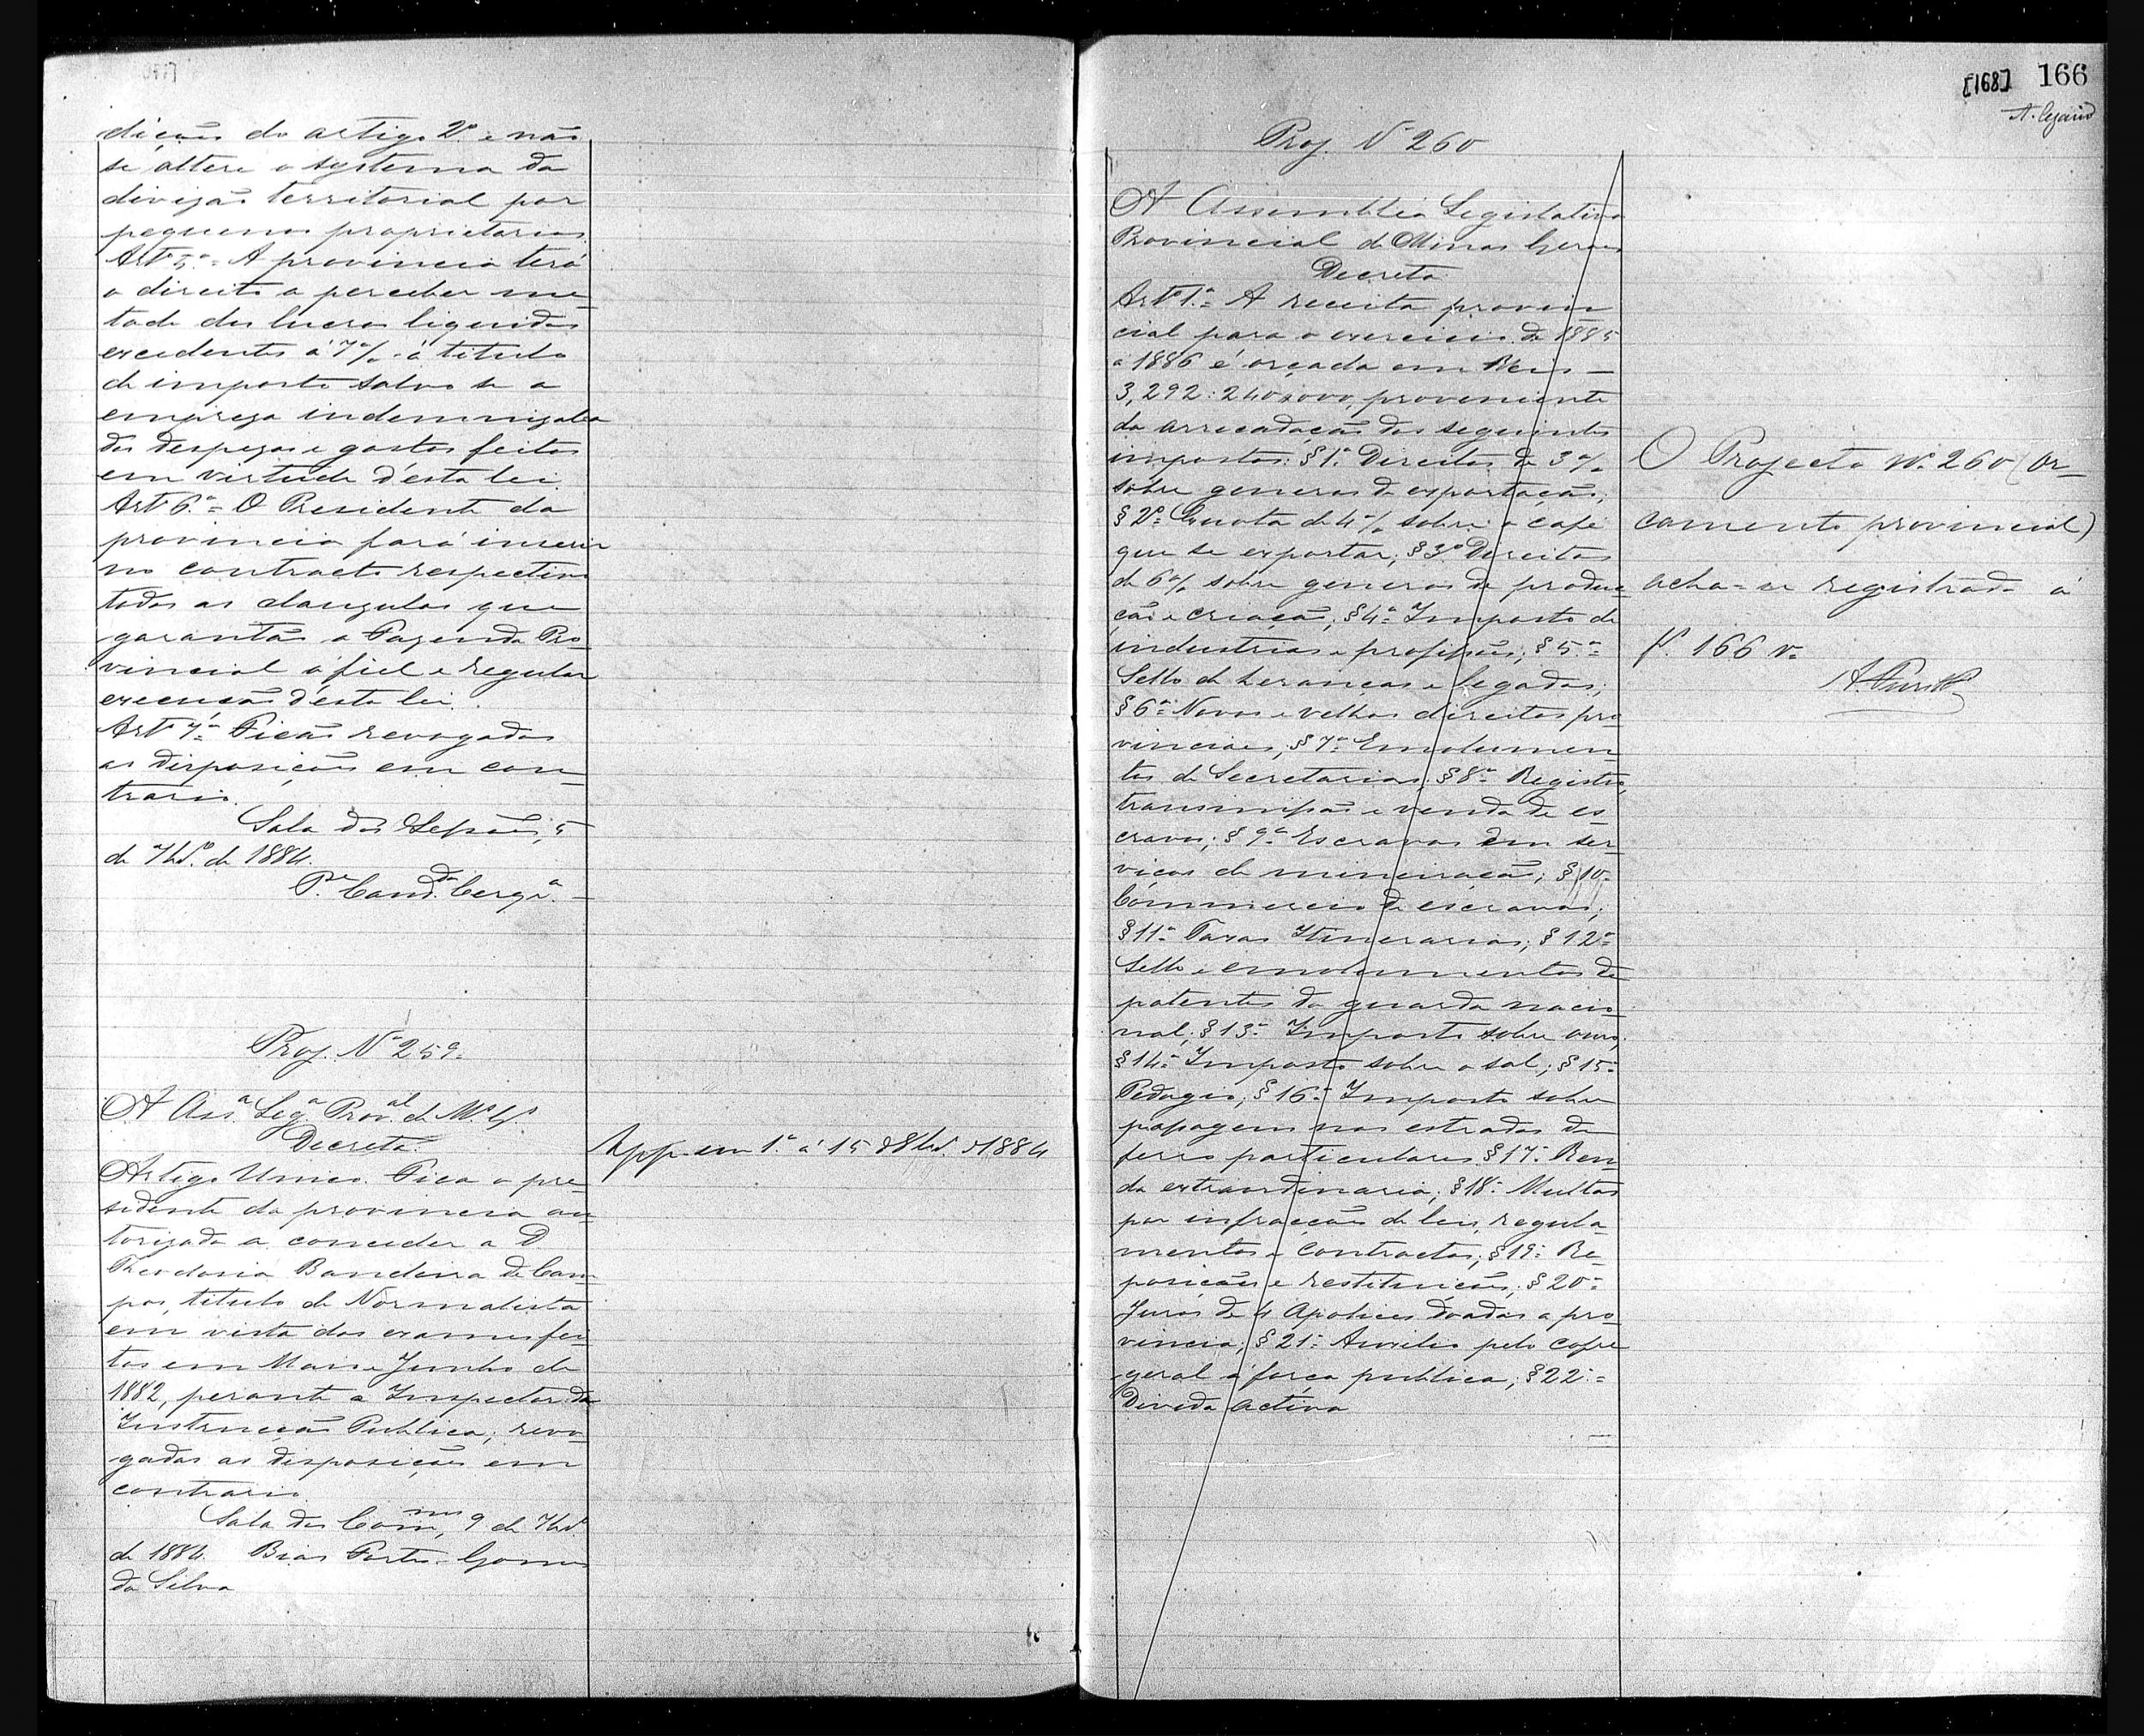 dições do artigo 2º e não
se altere o systema da
divizão territorial por
pequenos proprietarios.
Artº 5º = A provincia terá
o direito a perceber me-
tade dos lucros liquidos
excedentes á 7% á titulo
de imposto salvo se a
empreza indemnizal-a
das despezas e gastos feitos
em virtude d'esta lei.
Artº 6º = O Presidente da
provincia fará inserir
no contracto respectivo
todas as clauzulas que
garantão a Fazenda Pro-
vincial o fiel e regular
execusão d'esta lei.
Artº 7º = Ficão revogadas
as disposições em con-
trario.
Sala das Sessões, 5
de 7brº de 1884.
Pe. Candº Cerqª. -
Proj. Nº 259.
A Assª Legª Proval de Ms Gs.
Decreta:
Artigo Unico. Fica o pre-
sidente da provincia au-
torizado a conceder a D
Theodosia Bandeira de Cam-
pos, titulo de Normalista
em vista dos exames fei-
tos em Maio e Junho de
1882, perante a Inspector da
Instrucção Publica; revo-
gadas as disposições em
contrario
Sala das Commes, 9 de 7brº
de 1884. Bias Fortes. Gomes
da Silva
App. em 1ª á 15 d' 8br. d'1884
[168] 166
Proj. Nº 260
A Assembléa Legislativa
Provincial de Minas Geraes
Decreta:
Artº 1º = A receita provin
cial para o exercicio de 1885
a 1886 é orçada em Reis —
3,292:240$000, proveniente
da arrecadação dos seguintes
impostos: § 1º Direitos de 3%
sobre generos de exportação;
§ 2º = Quota de 4% sobre o café
que se exportar; § 3º Direitos
de 6% sobre generos de produc-
ção e criação; § 4º = Imposto de
industrias e profissões; § 5º =
Sello de heranças e legados;
§ 6º = Novos e velhos direitos pro
vinciaes; § 7º = Emolumen-
tos de Secretarias; § 8º = Registro,
transmissão e venda de es
cravos; § 9º = Escravos em ser-
viços de mineração; § 10 =
Commercio de escravos;
§ 11º = Taxas Itinerarias; § 12º =
Sello e emolumentos de
patentes da guarda nacio
nal; § 13 = Imposto sobre ouro;
§ 14 = Imposto sobre o sal; § 15 =
Pedagio; § 16 = Imposto sobre
passagem nas estradas de
ferro particulares. § 17 = Ren
da extraordinaria; § 18 = Multas
por infracções de leis, regula
mentos e contractos; § 19 = Re-
posições e restituições; § 20 =
Juros de 4 Apolices doadas a pro
vincia; § 21 = Auxilio pelo cofre
geral á força publica; § 22 =
Divida activa
O Projecto Nº 260 (Or-
camento provincial)
acha-se registrado á
fl. 166 v.